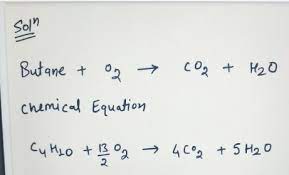 Solⁿ
Butane + O₂ → CO₂ + H₂O
Chemical Equation
C₄H₁₀ + 13/2 O₂ → 4CO₂ + 5H₂O